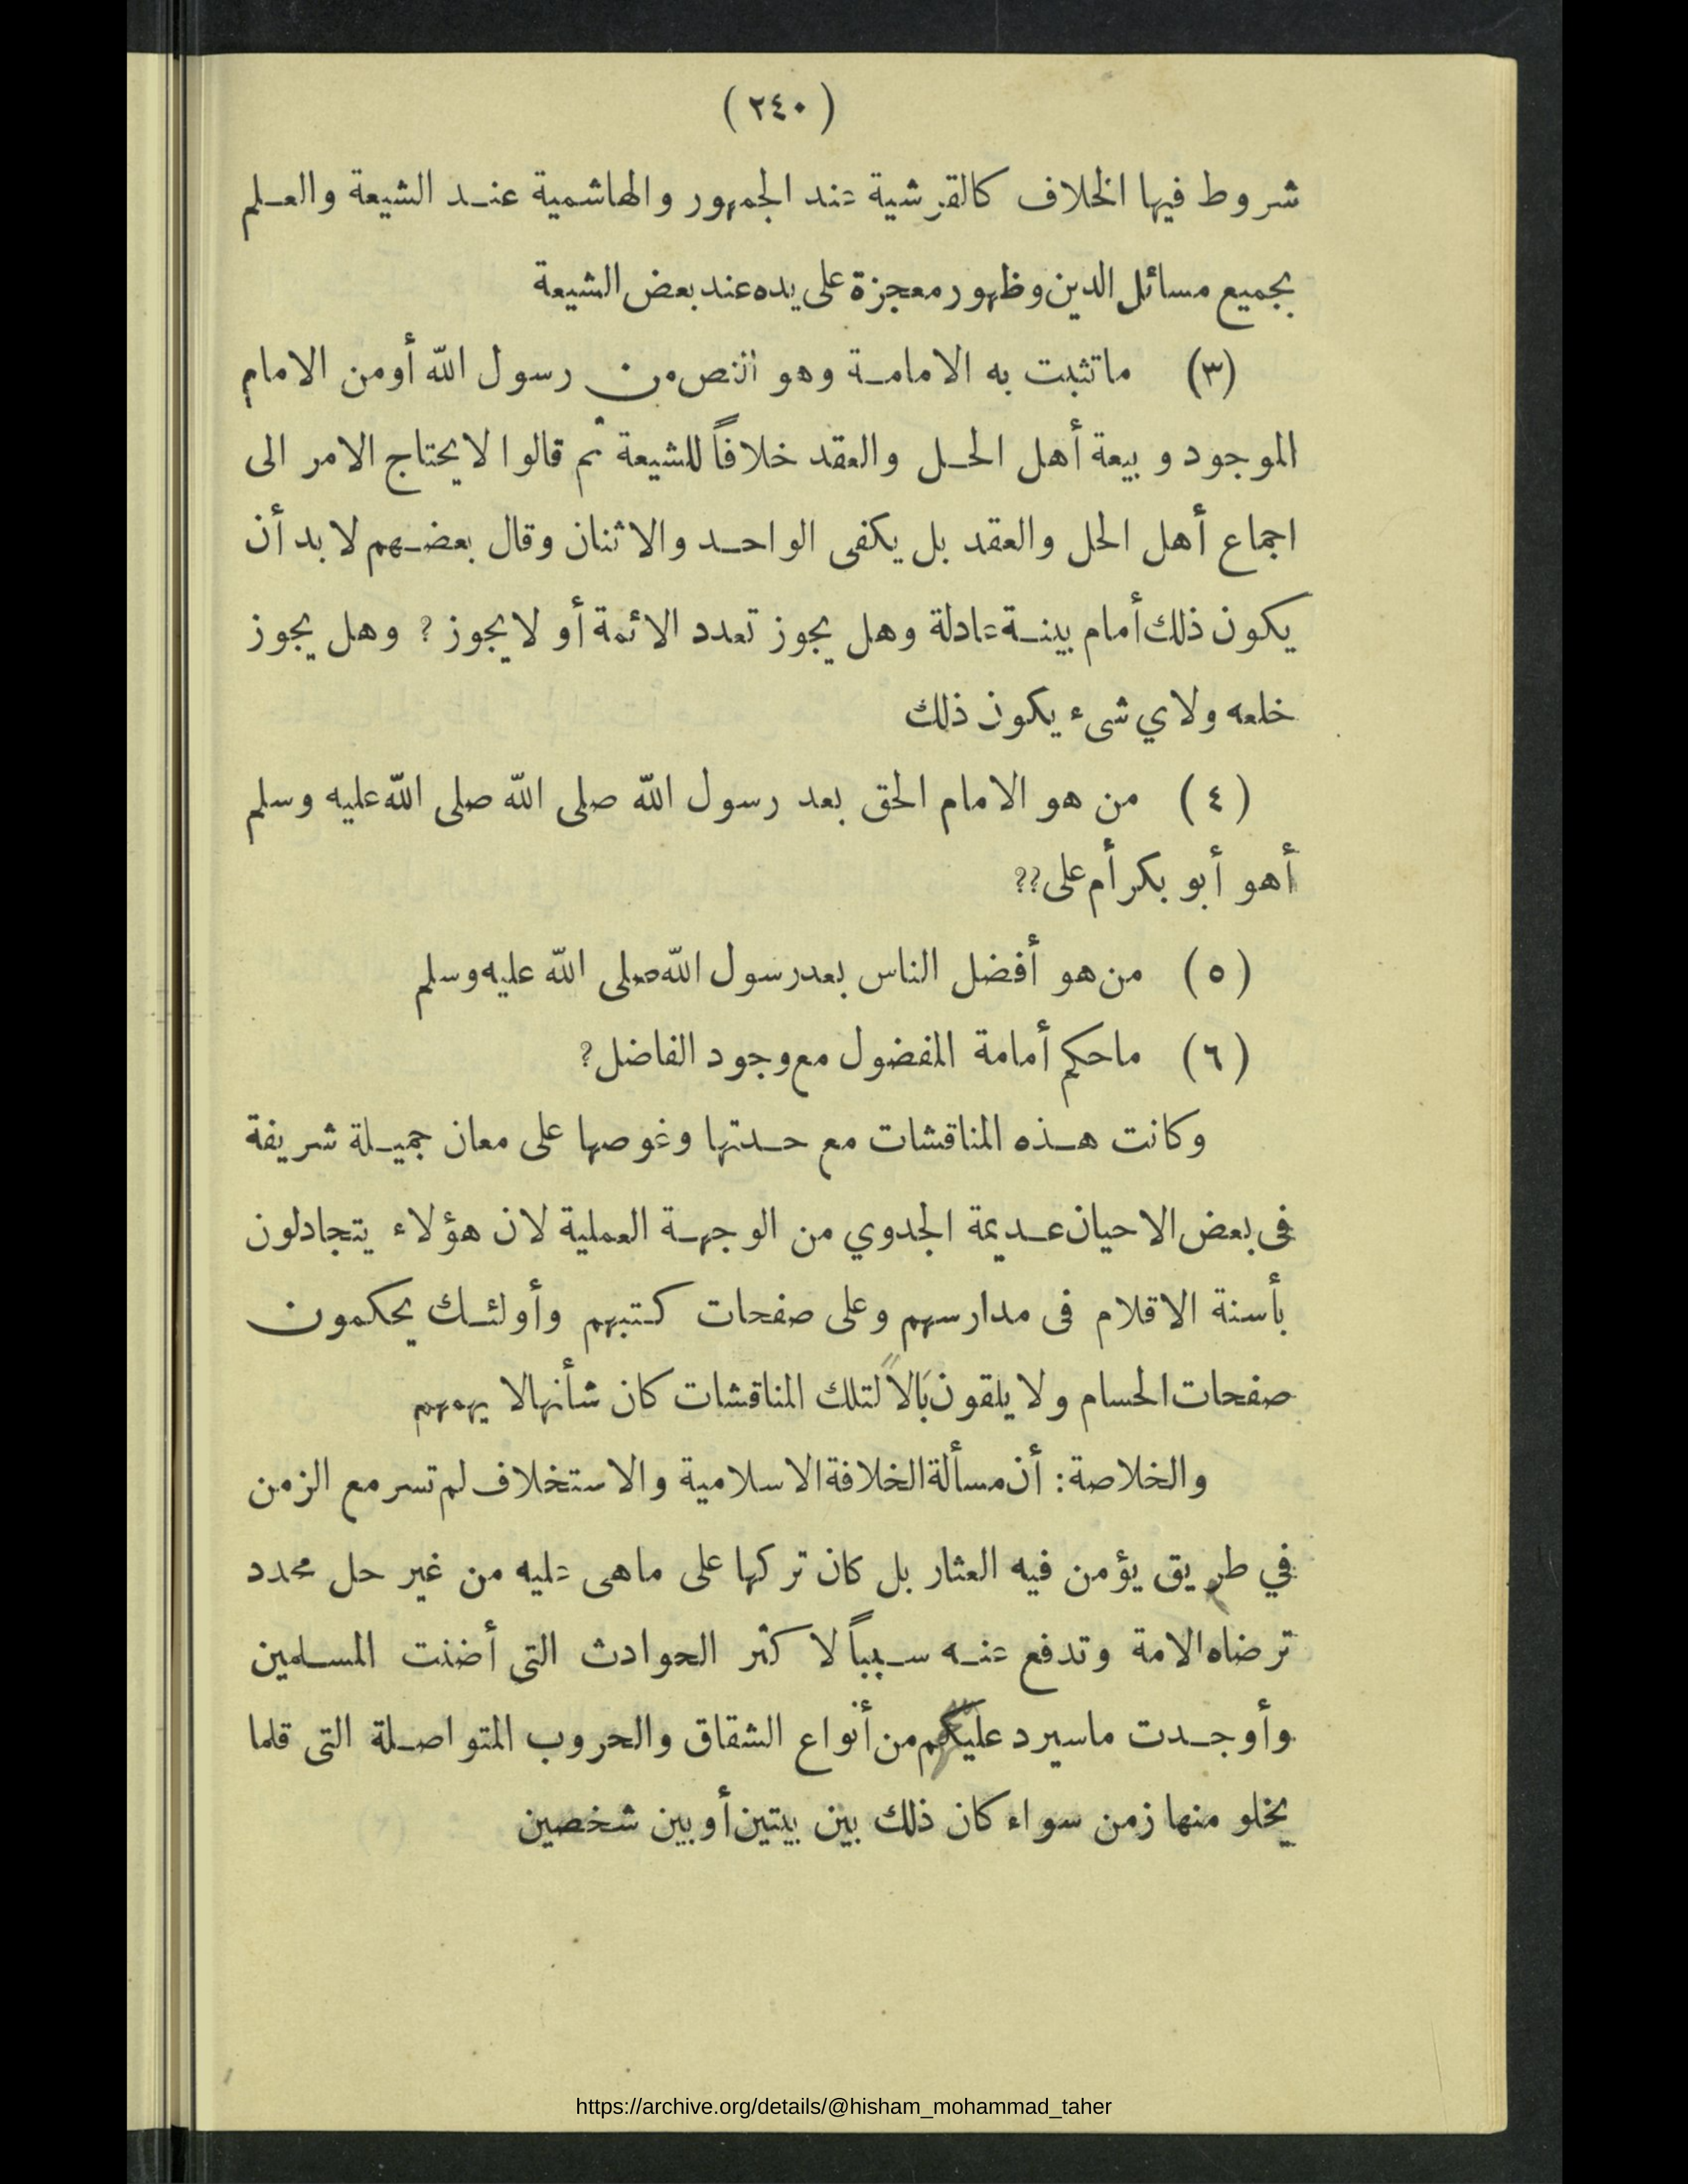 (٢٤٠)
شروط فيها الخلاف كالقرشية عند الجمهور والهاشمية عند الشيعة والعلم
بجميع مسائل الدين وظهور معجزة على يده عند بعض الشيعة
(٣) ماتثبت به الامامة وهو النص من رسول الله أومن الامام
الموجود وبيعة أهل الحل والعقد خلافاً للشيعة ثم قالوا لايحتاج الامر الى
اجماع أهل الحل والعقد بل يكفى الواحد والاثنان وقال بعضهم لابد أن
يكون ذلك أمام بينة عادلة وهل يجوز تعدد الائمة أو لايجوز ? وهل يجوز
خلعه ولاي شىء يكون ذلك
(٤) من هو الامام الحق بعد رسول الله صلى الله صلى الله عليه وسلم
أهو أبو بكر أم على??
(٥) من هو أفضل الناس بعد رسول الله صلى الله عليه وسلم
(٦) ماحكم أمامة المفضول مع وجود الفاضل?
وكانت هذه المناقشات مع حدتها وغوصها على معان جميلة شريفة
فى بعض الاحيان عديمة الجدوي من الوجهة العملية لان هؤلاء يتجادلون
بأسنة الاقلام فى مدارسهم وعلى صفحات كتبهم وأولئك يحكمون
صفحات الحسام ولا يلقون بَالاً لتلك المناقشات كان شأنها لا يهمهم
والخلاصة: أن مسألة الخلافة الاسلامية والاستخلاف لم تسر مع الزمن
في طريق يؤمن فيه العثار بل كان تركها على ماهى عليه من غير حل محدد
ترضاه الامة وتدفع عنه سبباً لاكثر الحوادث التى أضنت المسلمين
وأوجدت ماسيرد عليكم من أنواع الشقاق والحروب المتواصلة التى قلما
يخلو منها زمن سواء كان ذلك بين بيتين أو بين شخصين
https://archive.org/details/@hisham_mohammad_taher